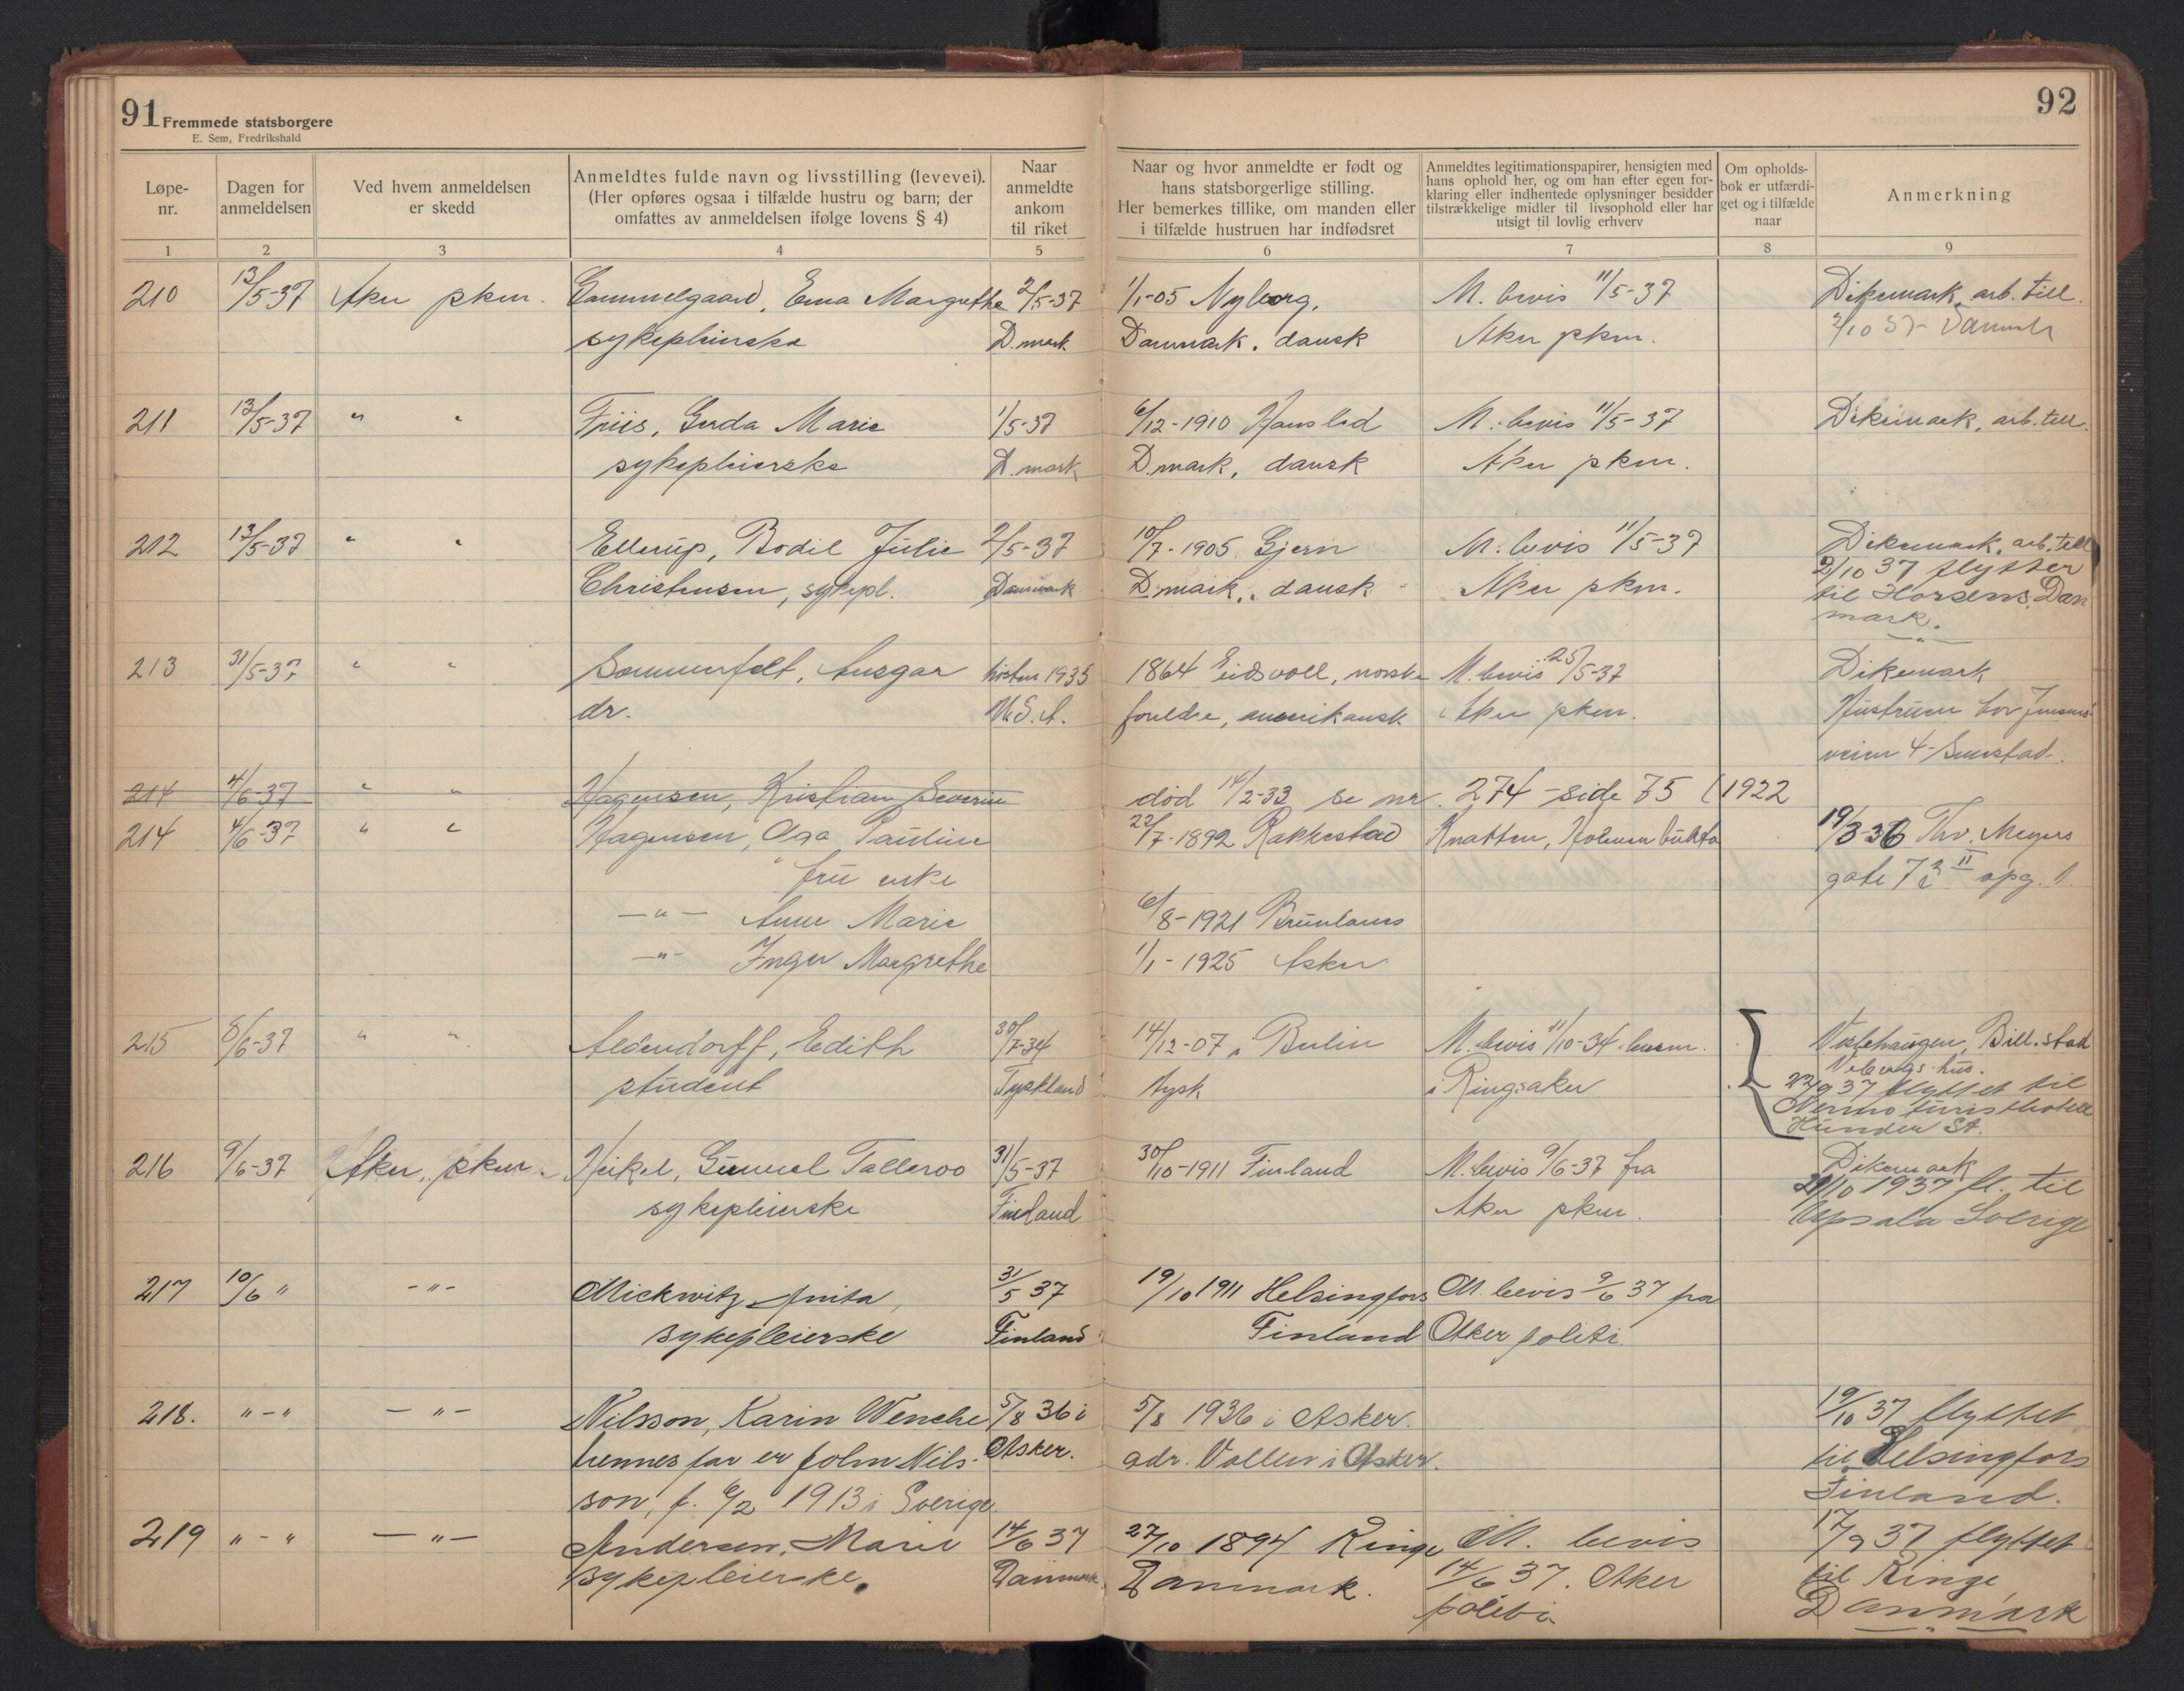 91 Fremmede statsborgere
E. Sem, Fredrikshald
92
Løpe-
nr.
Dagen for
anmeldelsen
Ved hvem anmeldelsen
er skedd
Anmeldtes fulde navn og livsstilling (levevei).
(Her opføres ogsaa i tilfælde hustru og barn; der
omfattes av anmeldelsen ifølge lovens § 4)
Naar
anmeldte
ankom
til riket
Naar og hvor anmeldte er født og
hans statsborgerlige stilling.
Her bemerkes tillike, om manden eller
i tilfælde hustruen har indfødsret
Anmeldtes legitimationspapirer, hensigten med
hans ophold her, og om han efter egen for-
klaring eller indhentede oplysninger besidder
tilstrækkelige midler til livsophold eller har
utsigt til lovlig erhverv
Om opholds-
bok er utfærdi-
get og i tilfælde
naar
Anmerkning
1 2 3 4 5 6 7 8 9
210 13/5-37 Aker pkm. Gammelgaard, Erna Margrethe 2/5-37 1/1-05 Nyborg, M. bevis 11/5-37 Dikemark, arb. till.
sykepleierske D.mark Danmark. dansk Aker pkm. 2/10 37 Danmark
211 13/5-37 " " Friis, Gerda Marie 1/5-37 6/12-1910 M. bevis 11/5-37 Dikemark, arb. till.
sykepleierske D.mark D.mark, dansk Aker pkm.
212 13/5-37 " " Ellerup, Bodil Julie 2/5-37 10/7-1905 Gjern M. bevis 11/5-37 Dikemark, arb. till
Christensen, sykepl. Danmark D.mark, dansk Aker pkm. 2/10 37 flytter
til Horsens, Dan
mark.
213 31/5-37 " " Sommerfelt, Ansgar høsten 1935 1864 Eidsvoll, norske M. bevis 25/5-37 Dikemark
dr. U.S.A. foreldre, amerikansk Aker pkm. Hustruen bor Jensens-
veien 4 Smestad.
214 4/6-37 " " Hagensen, Kristian Severin død 14/2-33 se nr. 274 - side 75 (1922
214 4/6-37 " " Hagensen, Olga Pauline 22/7-1892 Rakkestad Knatten, Holmenbukta 19/3-36 Thv. Meyers
" frue enke gate 72 II opg. 1.
— " — Anne Marie 6/8-1921 Brunlanes
— " — Inger Margrethe 1/1-1925 Asker
215 8/6-37 " " Aldendorff, Edith 30/7-34 14/12-07, Berlin M. bevis 11/10-34 Billstad
student Tyskland tysk i Ringsaker
22/9 37 flyttet til
Nermo turisthotell
Hunder St.
216 9/6-37 Aker pkm. Heikel, Gunnel Talleroo 31/5-37 30/10-1911 Finland M. bevis 9/6-37 fra Dikemark
sykepleierske Finland Aker pkm. 21/10 1937 fl. til
Upsala Sverige
217 10/6 " - " - Mickwitz, Anita, 31/5 37 19/10 1911 Helsingfors M. bevis 9/6 37 fra
sykepleierske Finland Finland Aker politi
218. " - " — " — Nilsson, Karin Wenche 5/8 36 i 5/8 1936 i Asker. 19/10 37 flyttet
hennes far er John Nils- Asker. adr. Vollen i Asker. til Helsingfors
son, f. 6/2 1913 i Sverige. Finland.
219 " - " — " — Andersen, Marie 14/6 37 27/10 1894 Ringe M. bevis 17/9 37 flyttet
sykepleierske. Danmark Danmark. 14/6 37. Aker til Ringe
politi Danmark